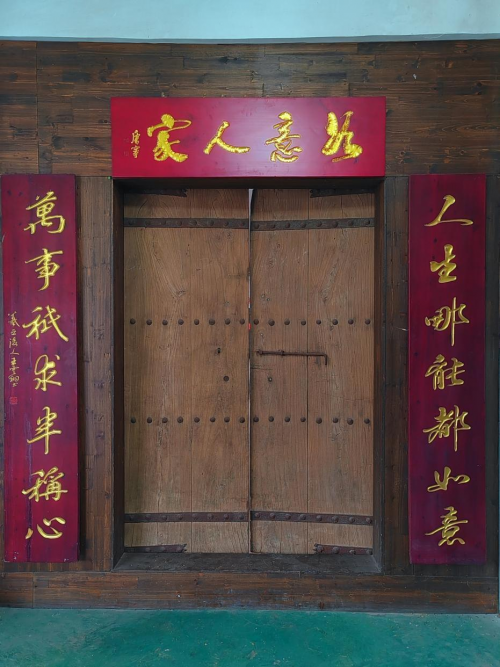 意人家
人生哪能都如意
萬事祇求半稱心